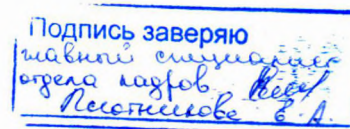 Подпись заверяю
главный специалист
отдела кадров
Плотникова Е. А.